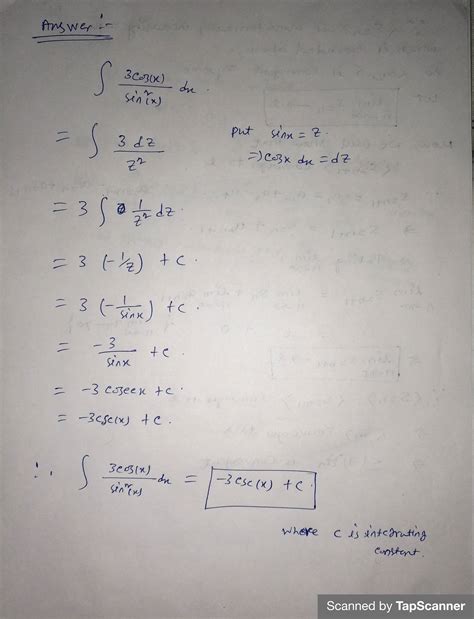 Answer :-
∫ 3cos(x)/sin²(x) dx.
= ∫ 3 dz/z²   put sinx = z.
⇒ cosx dx = dz
= 3 ∫ 1/z² dz.
= 3 (-1/z) + c.
= 3 (-1/sinx) + c.
= -3/sinx + c.
= -3 cosecx + c.
= -3csc(x) + c.
∴ ∫ 3cos(x)/sin²(x) dx = -3csc(x) + c.
where c is integrating
constant.
Scanned by TapScanner